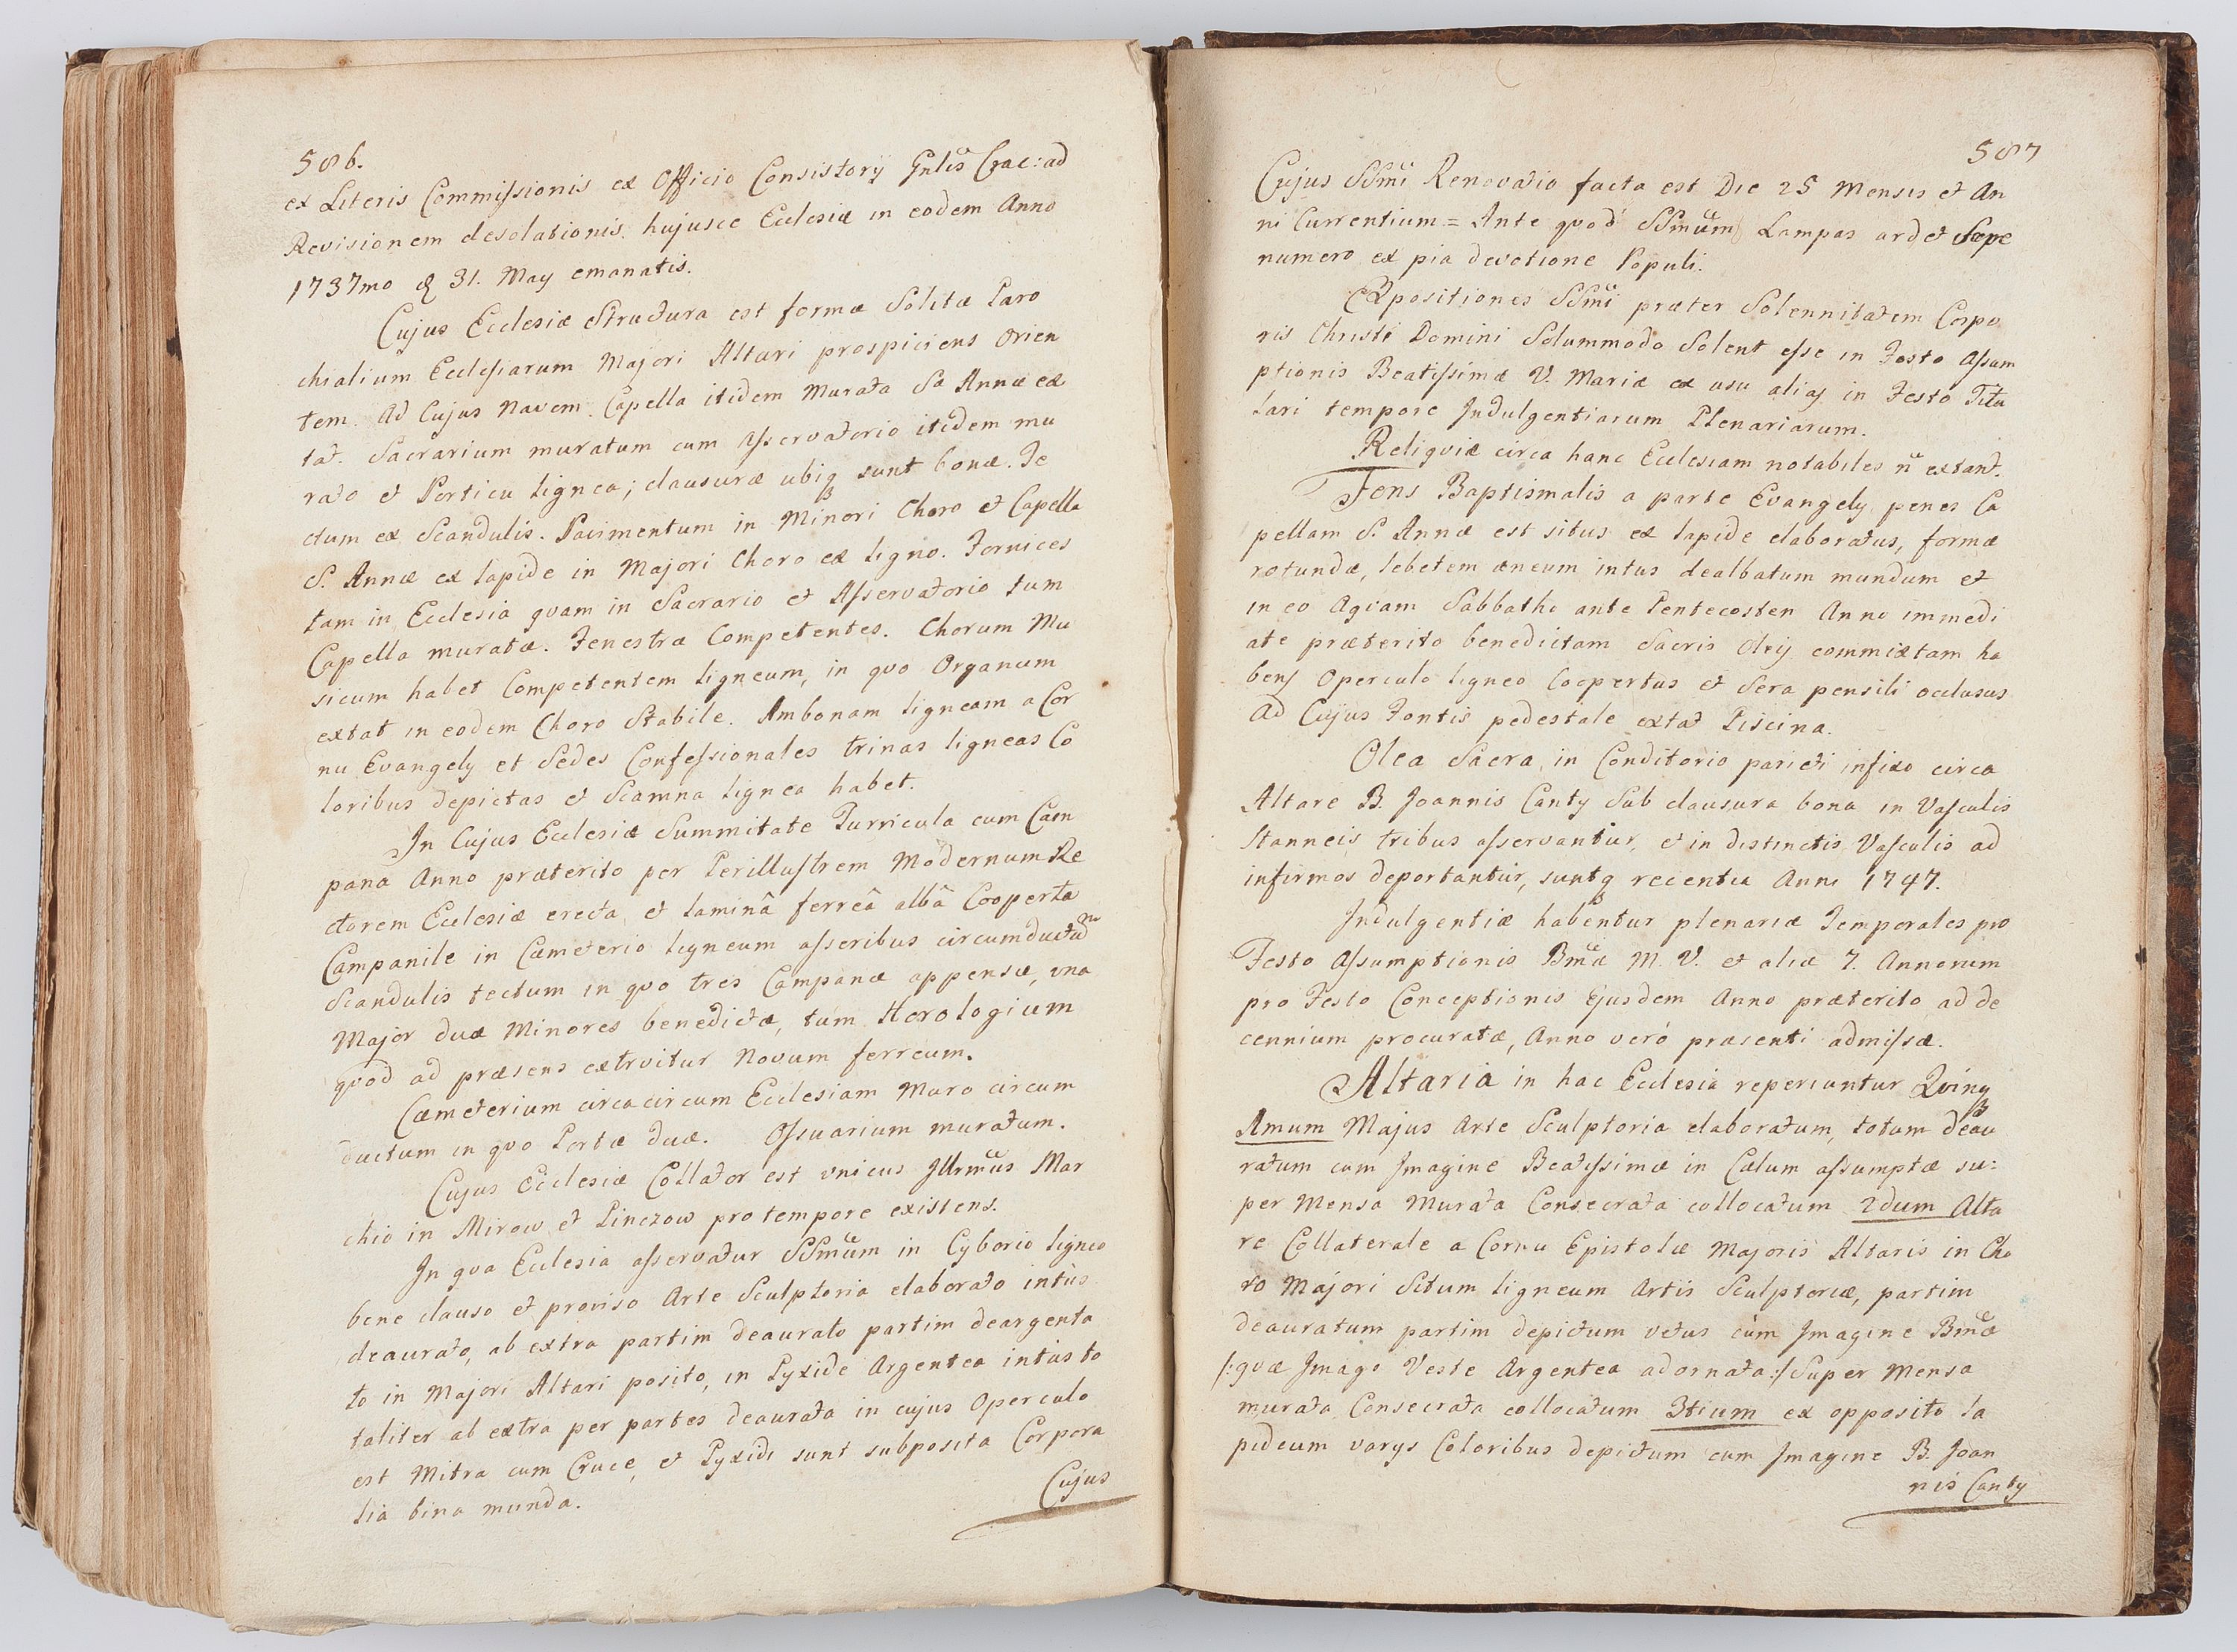 586.
ex Literis Commissionis ex Officio Consistorij Gnlis Crac: ad
Revisionem desolationis hujusce Ecclesiæ in eodem Anno
1737mo d 31. May emanatis.
Cujus Ecclesiæ Structura est formæ Solitæ Paro
chialium Ecclesiarum Majori Altari prospiciens Orien
tem. Ad Cujus Navem Capella itidem Murata Sæ Annæ ex
tat. Sacrarium muratum cum Asservatorio itidem mu
rato et Porticu lignea; clausuræ ubiq sunt bonæ. Te
ctum ex Scandulis. Pavimentum in Minori Choro et Capella
S. Annæ ex lapide in Majori Choro ex ligno. Fornices
tam in Ecclesia quam in Sacrario et Asservatorio tum
Capella muratæ. Fenestræ Competentes. Chorum Mu
sicum habet Competentem ligneum, in quo Organum
extat in eodem Choro Stabile. Ambonam ligneam a Cor
nu Evangely et Sedes Confessionales trinas ligneas Co
loribus depictas et Scamna lignea habet.
In Cujus Ecclesiæ Summitate Turricula cum Cam
pana Anno præterito per Perillustrem Modernum Re
ctorem Ecclesiæ erecta et laminâ ferreâ albâ Cooperta
Campanile in Cæmeterio ligneum asseribus circumductum
Scandulis tectum in quo tres Campanæ appensæ, una
Major duæ Minores benedictæ, tum Horologium
quod ad præsens extruitur Novum ferreum.
Cæmeterium circacircum Ecclesiam Muro circum
ductum in quo Portæ duæ. Ossuarium muratum.
Cujus Ecclesiæ Collator est unicus Illrmus Mar
chio in Mirow et Pinczow pro tempore existens.
In qua Ecclesia asservatur SSmum in Cyborio ligneo
bene clauso et proviso Arte Sculptoria elaborato intùs
deaurato, ab extra partim deaurato partim deargenta
to in Majori Altari posito, in Pyxide Argentea intus to
taliter ab extra per partes deaurata in cujus Operculo
est Mitra cum Cruce, et Pyxidi sunt subposita Corpora
lia bina munda.
Cujus
587
Cujus SSmi Renovatio facta est Die 25 Mensis et An
ni Currentium = Ante quod SSmum Lampas ardet Sæpe
numero ex pia devotione Populi.
Expositiones SSmi præter Solennitatem Corpo
ris Christi Domini Solummodo Solent esse in Festo Assum
ptionis Beatissimæ V. Mariæ ex usu alias in Festo Titu
lari tempore Indulgentiarum Plenariarum.
Reliquiæ circa hanc Ecclesiam notabiles n extant.
Fons Baptismalis a parte Evangely penes Ca
pellam S. Annæ est situs ex lapide elaboratus, formæ
rotundæ, lebetem æneum intus dealbatum mundum et
in eo Aquam Sabbatho ante Pentecosten Anno immedi
ate præterito benedictam Sacris Oleij commixtam ha
bens Operculo ligneo Coopertus et Sera pensili occlusus
Ad Cujus Fontis pedestale extat Piscina.
Olea Sacra in Conditorio parieti infixo circa
Altare B. Joannis Canty Sub clausura bona in Vasculis
Stanneis tribus asservantur, et in distinctis Vasculis ad
infirmos deportantur, suntq recentia Anni 1747.
Indulgentiæ habentur plenariæ Temporales pro
Festo Assumptionis Bmæ M. V. et aliæ 7. Annorum
pro Festo Conceptionis Ejusdem Anno præterito ad de
cennium procuratæ, Anno verò præsenti admissæ.
Altaria in hac Ecclesia reperiuntur Quinq
Amum Majus Arte Sculptoria elaboratum, totum deau
ratum cum Imagine Beatissimæ in Cælum assumptæ su=
per Mensa Murata Consecrata collocatum 2dum Alta
re Collaterale a Cornu Epistolæ Majoris Altaris in Cho
ro Majori Situm ligneum Artis Sculptoriæ, partim
deauratum partim depictum vetus cùm Imagine Bmæ
/:quæ Imago Veste Argentea adornata:/ Super Mensa
murata Consecrata collocatum 3tium ex opposito la
pideum varys Coloribus depictum cum Imagine B. Joan
nis Canty